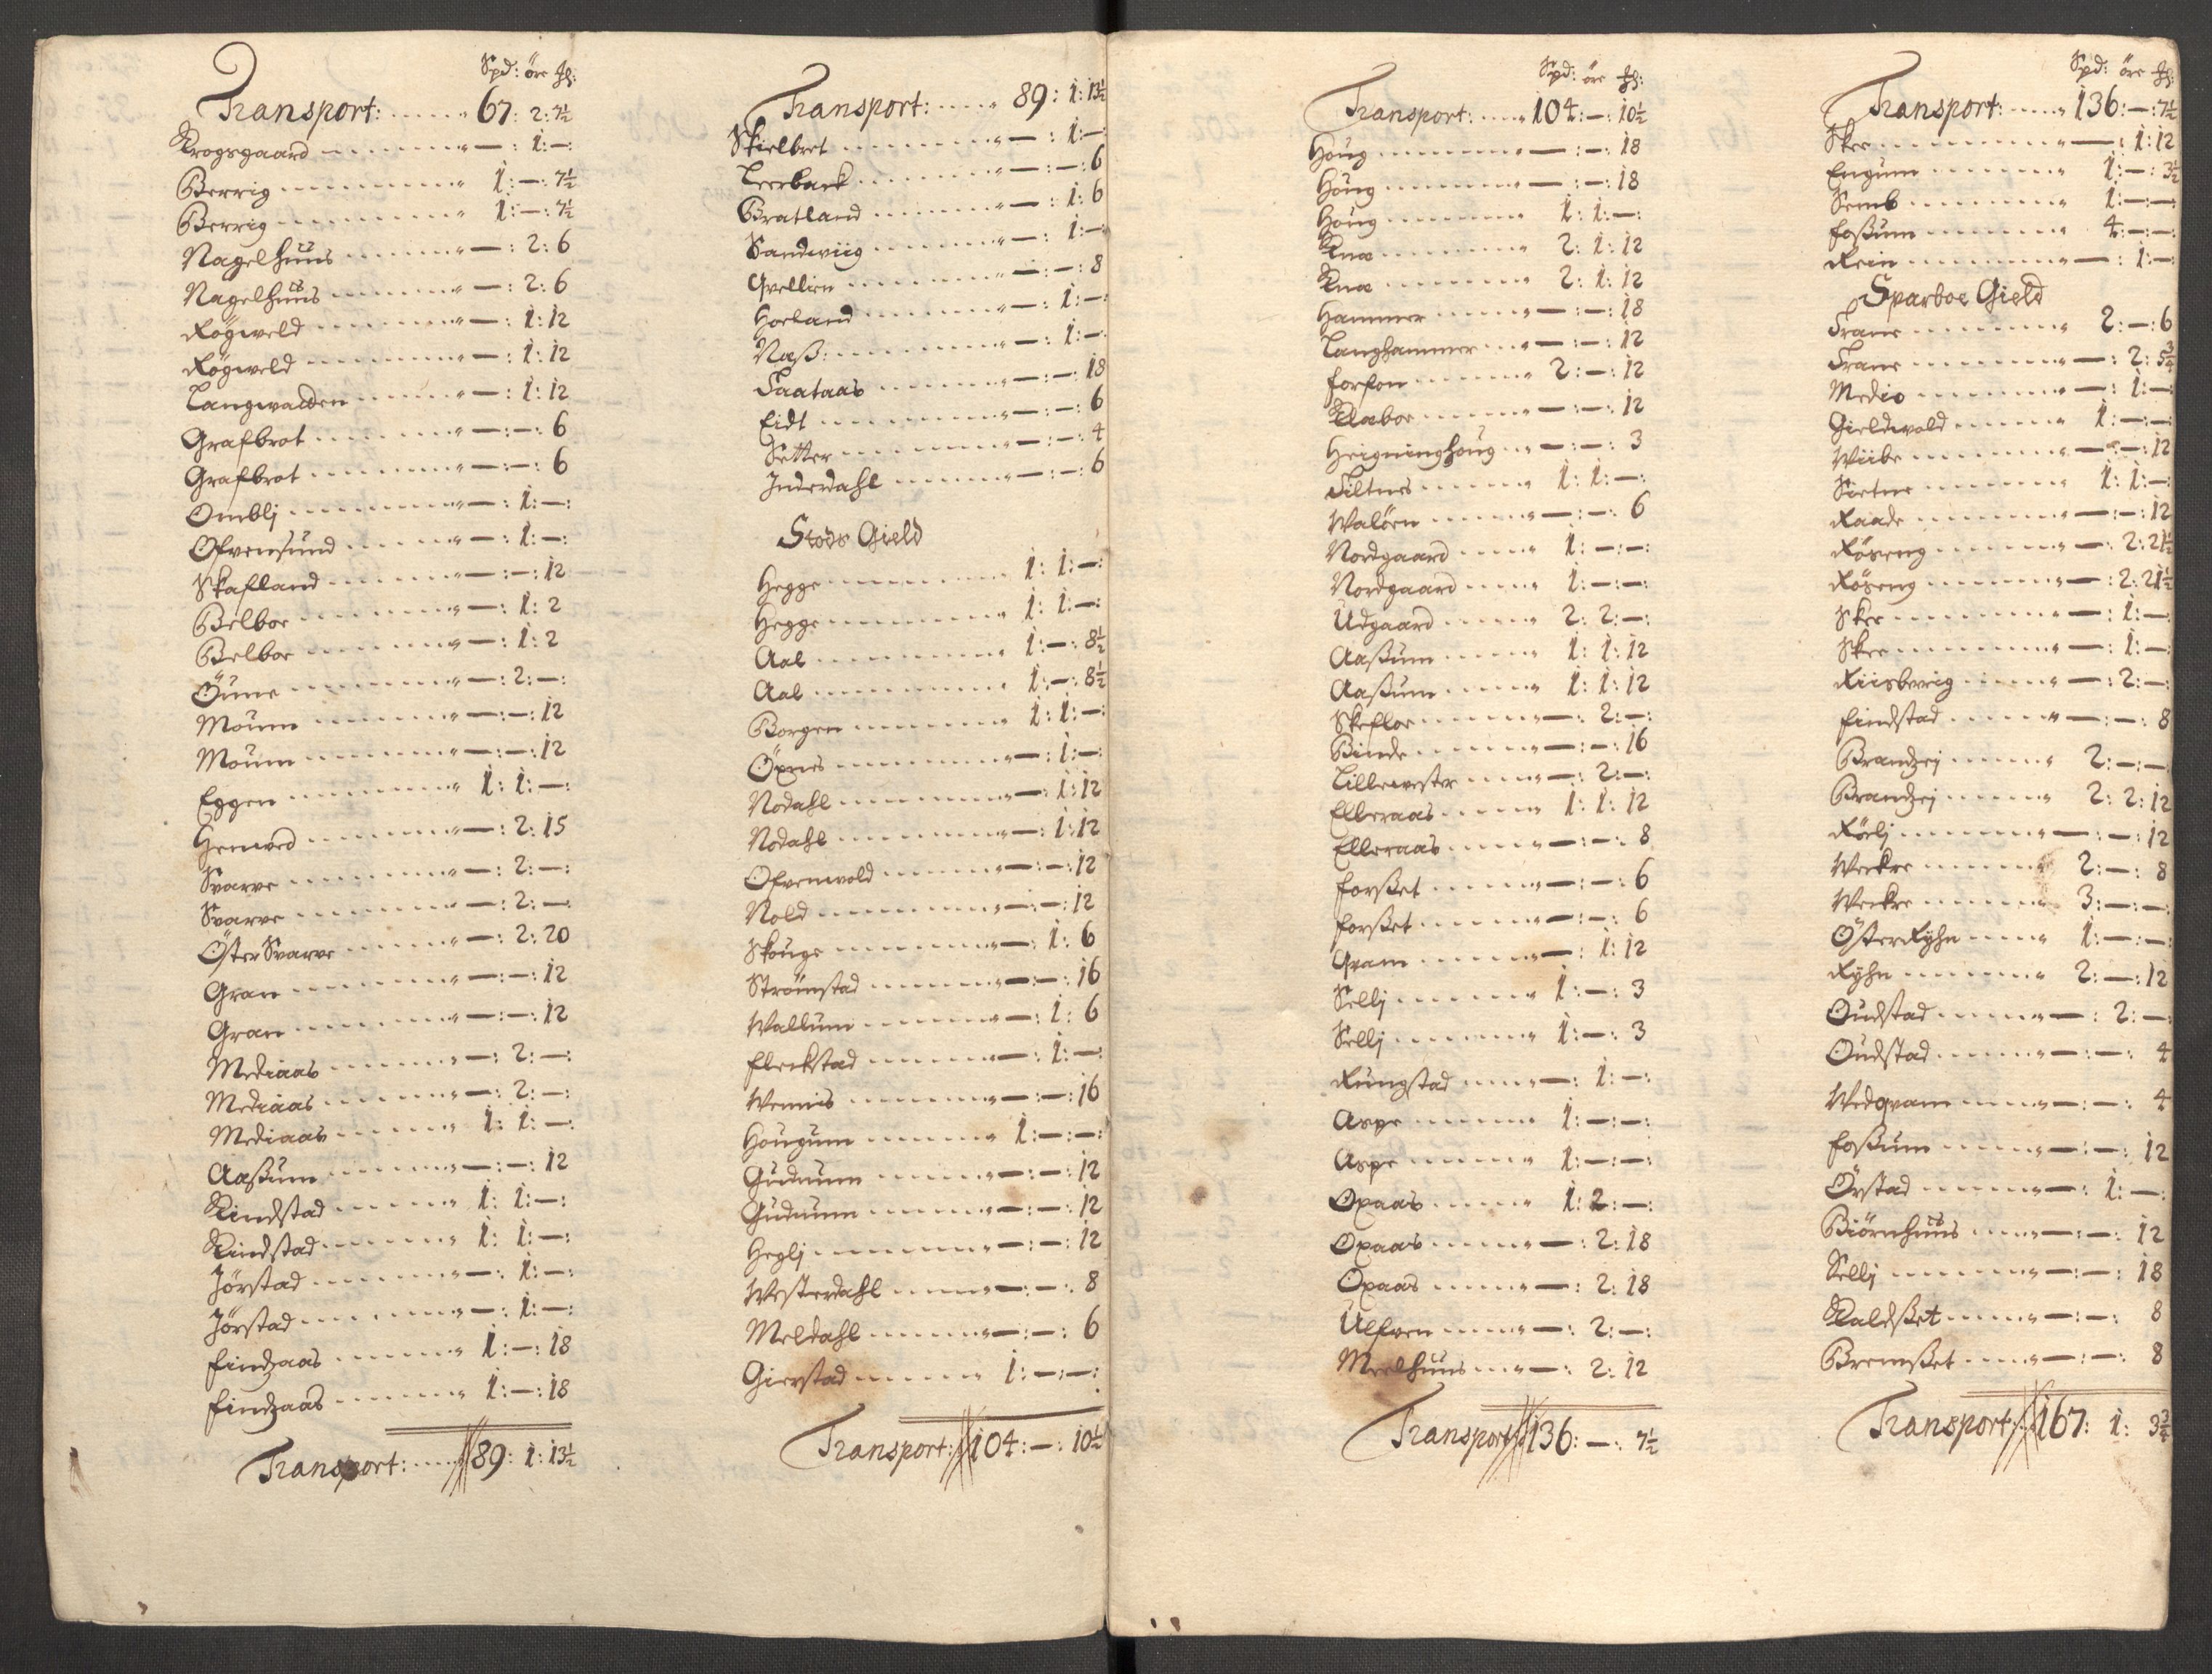 Spd: öre
Transport: 67: 2: 7½
Krogsgaard — : 1: —:
Berrig 1: —: 7½
Berrig 1: —: 7½
Nagelhuus —: 2: 6
Nagelhuus —: 2: 6
Rögweld —: 1: 12
Rögweld —: 1: 12
Langwadden —: 1: 12
Grafbrot —: —: 6
Grafbrot —: —: 6
Omblj —: 1: —:
Ofvensund —: 1: —:
Skafland —: —: 12
Belboe —: 1: 2
Belboe —: 1: 2
Öune —: 2: —:
Moum —: —: 12
Moum —: —: 12
Eggen 1: 1: —:
—: 2: 15
Svarve —: 2: —:
Svarve —: 2: —:
Öster Svarve —: 2: 20
Gran —: —: 12
Gran —: —: 12
Mediaas —: 2: —:
Mediaas —: 2: —:
Mediaas 1: 1: —:
Aaßum —: —: 12
Kindstad 1: 1: —:
Kindstad 1: 1: —:
Jörstad —: 1: —:
Jörstad —: 1: —:
Findzaas 1: —: 18
Findzaas 1: —: 18
Transport: 89: 1: 13½
Transport: 89: 1: 13½
Skielbret —: 1: —:
Leerback —: —: 6
Bratland —: 1: 6
Sandwiig —: 1: —:
Qvellien —: —: 8
Hoeland —: 1: —:
Naß: —: 1: —:
Taataas —: —: 18
Eidt —: —: 6
Setter —: —: 4
Inderdahl —: —: 6
Stods Gield
Hegge 1: 1: —:
Hegge 1: 1: —:
Aal 1: —: 8½
Aal 1: —: 8½
Borgen 1: 1: —:
Öxnes —: 1: —:
Nodahl —: 1: 12
Nodahl —: 1: 12
Ofvenwold —: —: 12
Nold —: —: 12
Skouge —: 1: 6
Strömstad —: —: 16
Wallum —: 1: 6
Fleckstad —: 1: —:
Wennis —: —: 16
Hougum 1: —: —:
Gudmum —: —: 12
Gudmum —: —: 12
Heglj —: —: 12
Westerdahl —: —: 8
Meldahl —: —: 6
Gierstad 1: —: —:
Transport: 104: —: 10½
Spd: öre
Transport: 104: —: 10½
Houg —: —: 18
Houg —: —: 18
Houg 1: 1: —:
Kna 2: 1: 12
Kna 2: 1: 12
Hammer —: —: 18
Langhammer —: —: 12
Forfon 2: —: 12
Klaboe —: —: 12
Heigninghoug —: —: 3
Tiltnes 1: 1: —:
Walöen —: —: 6
Nordgaard 1: —: —:
Nordgaard 1: —: —:
Udgaard 2: 2: —:
Aaßum 1: 1: 12
Aaßum 1: 1: 12
Skefloe —: 2: —:
Binde —: —: 16
Lillewester —: 2: —:
Elleraas 1: 1: 12
Elleraas —: —: 8
Forßet —: —: 6
Forßet —: —: 6
Qvam —: 1: 12
Sellj 1: —: 3
Sellj 1: —: 3
Rungstad —: 1: —:
Aspe 1: —: —:
Aspe 1: —: —:
Oxaas 1: 2: —:
Oxaas —: 2: 18
Oxaas —: 2: 18
Ulfven —: 2: —:
Meelhuus —: 2: 12
Transport: 136: —: 7½
Spd: öre
Transport: 136: —: 7½
Skee —: 1: 12
Engum 1: —: 3½
Semb 1: —: —:
Foßum 4: —: —:
Rein —: 1: —:
Sparboe Gield
Trane 2: —: 6
Trane —: 2: 5¾
Medio —: 1: —:
Gieldwold 1: —: —:
Wiibe —: —: 12
Sietne 1: 1: —:
Raade —: —: 12
Röseng —: 2: 21½
Röseng —: 2: 21½
Skee —: 1: —:
Skee —: 1: —:
Riisberig —: 2: —:
Findstad —: —: 8
Brandzej 2: —: —:
Brandzej 2: 2: 12
Röelj —: —: 12
Weckre 2: —: 8
Weckre 3: —: —:
Österkyhn 1: —: —:
Ryhn 2: —: 12
Oudstad —: 2: —:
Oudstad —: —: 4
Wedqvam —: —: 4
Foßum —: —: 12
Örstad —: 1: —:
Biörnhuus —: —: 12
Sellj —: —: 18
Kaldßet —: —: 8
Bremßet —: —: 8
Transport: 167: 1: 3¾